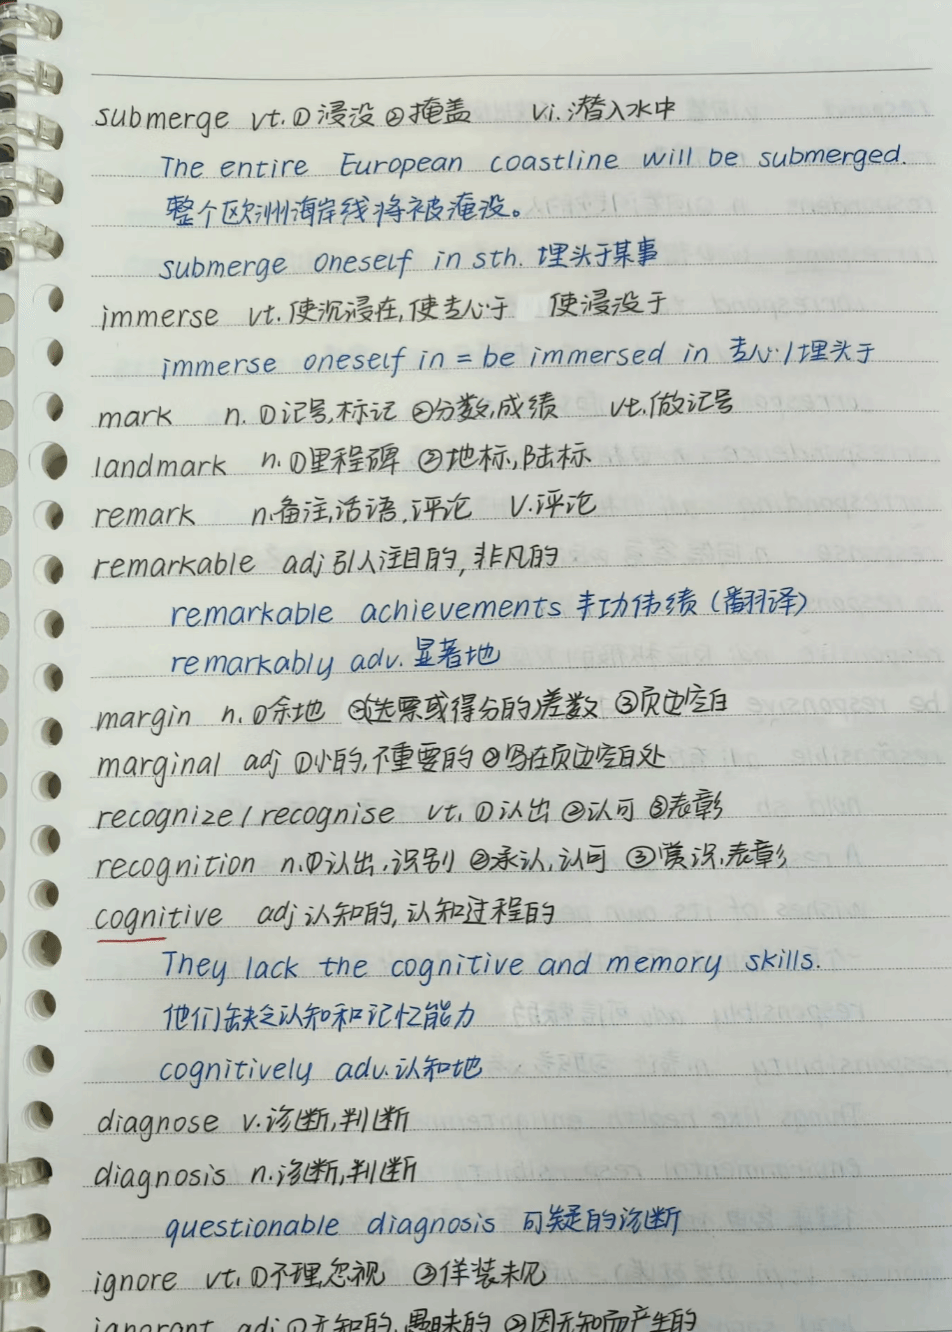 submerge vt.①浸没②掩盖 vi.潜入水中
The entire European coastline will be submerged.
整个欧洲海岸线将被淹没。
submerge oneself in sth. 埋头于某事
immerse vt.使沉浸在,使专心于 使浸没于
immerse oneself in = be immersed in 专心/埋头于
mark n.①记号,标记 ②分数,成绩 vt.做记号
landmark n.①里程碑 ②地标,陆标
remark n.备注,话语,评论 V.评论
remarkable adj引人注目的,非凡的
remarkable achievements 丰功伟绩(翻译)
remarkably adv.显著地
margin n.①余地 ②(选票或得分的)差数 ③页边空白
marginal adj ①小的,不重要的 ②写在页边空白处
recognize/recognise vt.①认出 ②认可 ③表彰
recognition n.①认出,识别 ②承认,认可 ③赏识,表彰
cognitive adj认知的,认知过程的
They lack the cognitive and memory skills.
他们缺乏认知和记忆能力
cognitively adv.认知地
diagnose v.诊断,判断
diagnosis n.诊断,判断
questionable diagnosis 可疑的诊断
ignore vt.①不理,忽视 ②佯装未见
ignorant adj①无知的,愚昧的 ②因无知而产生的